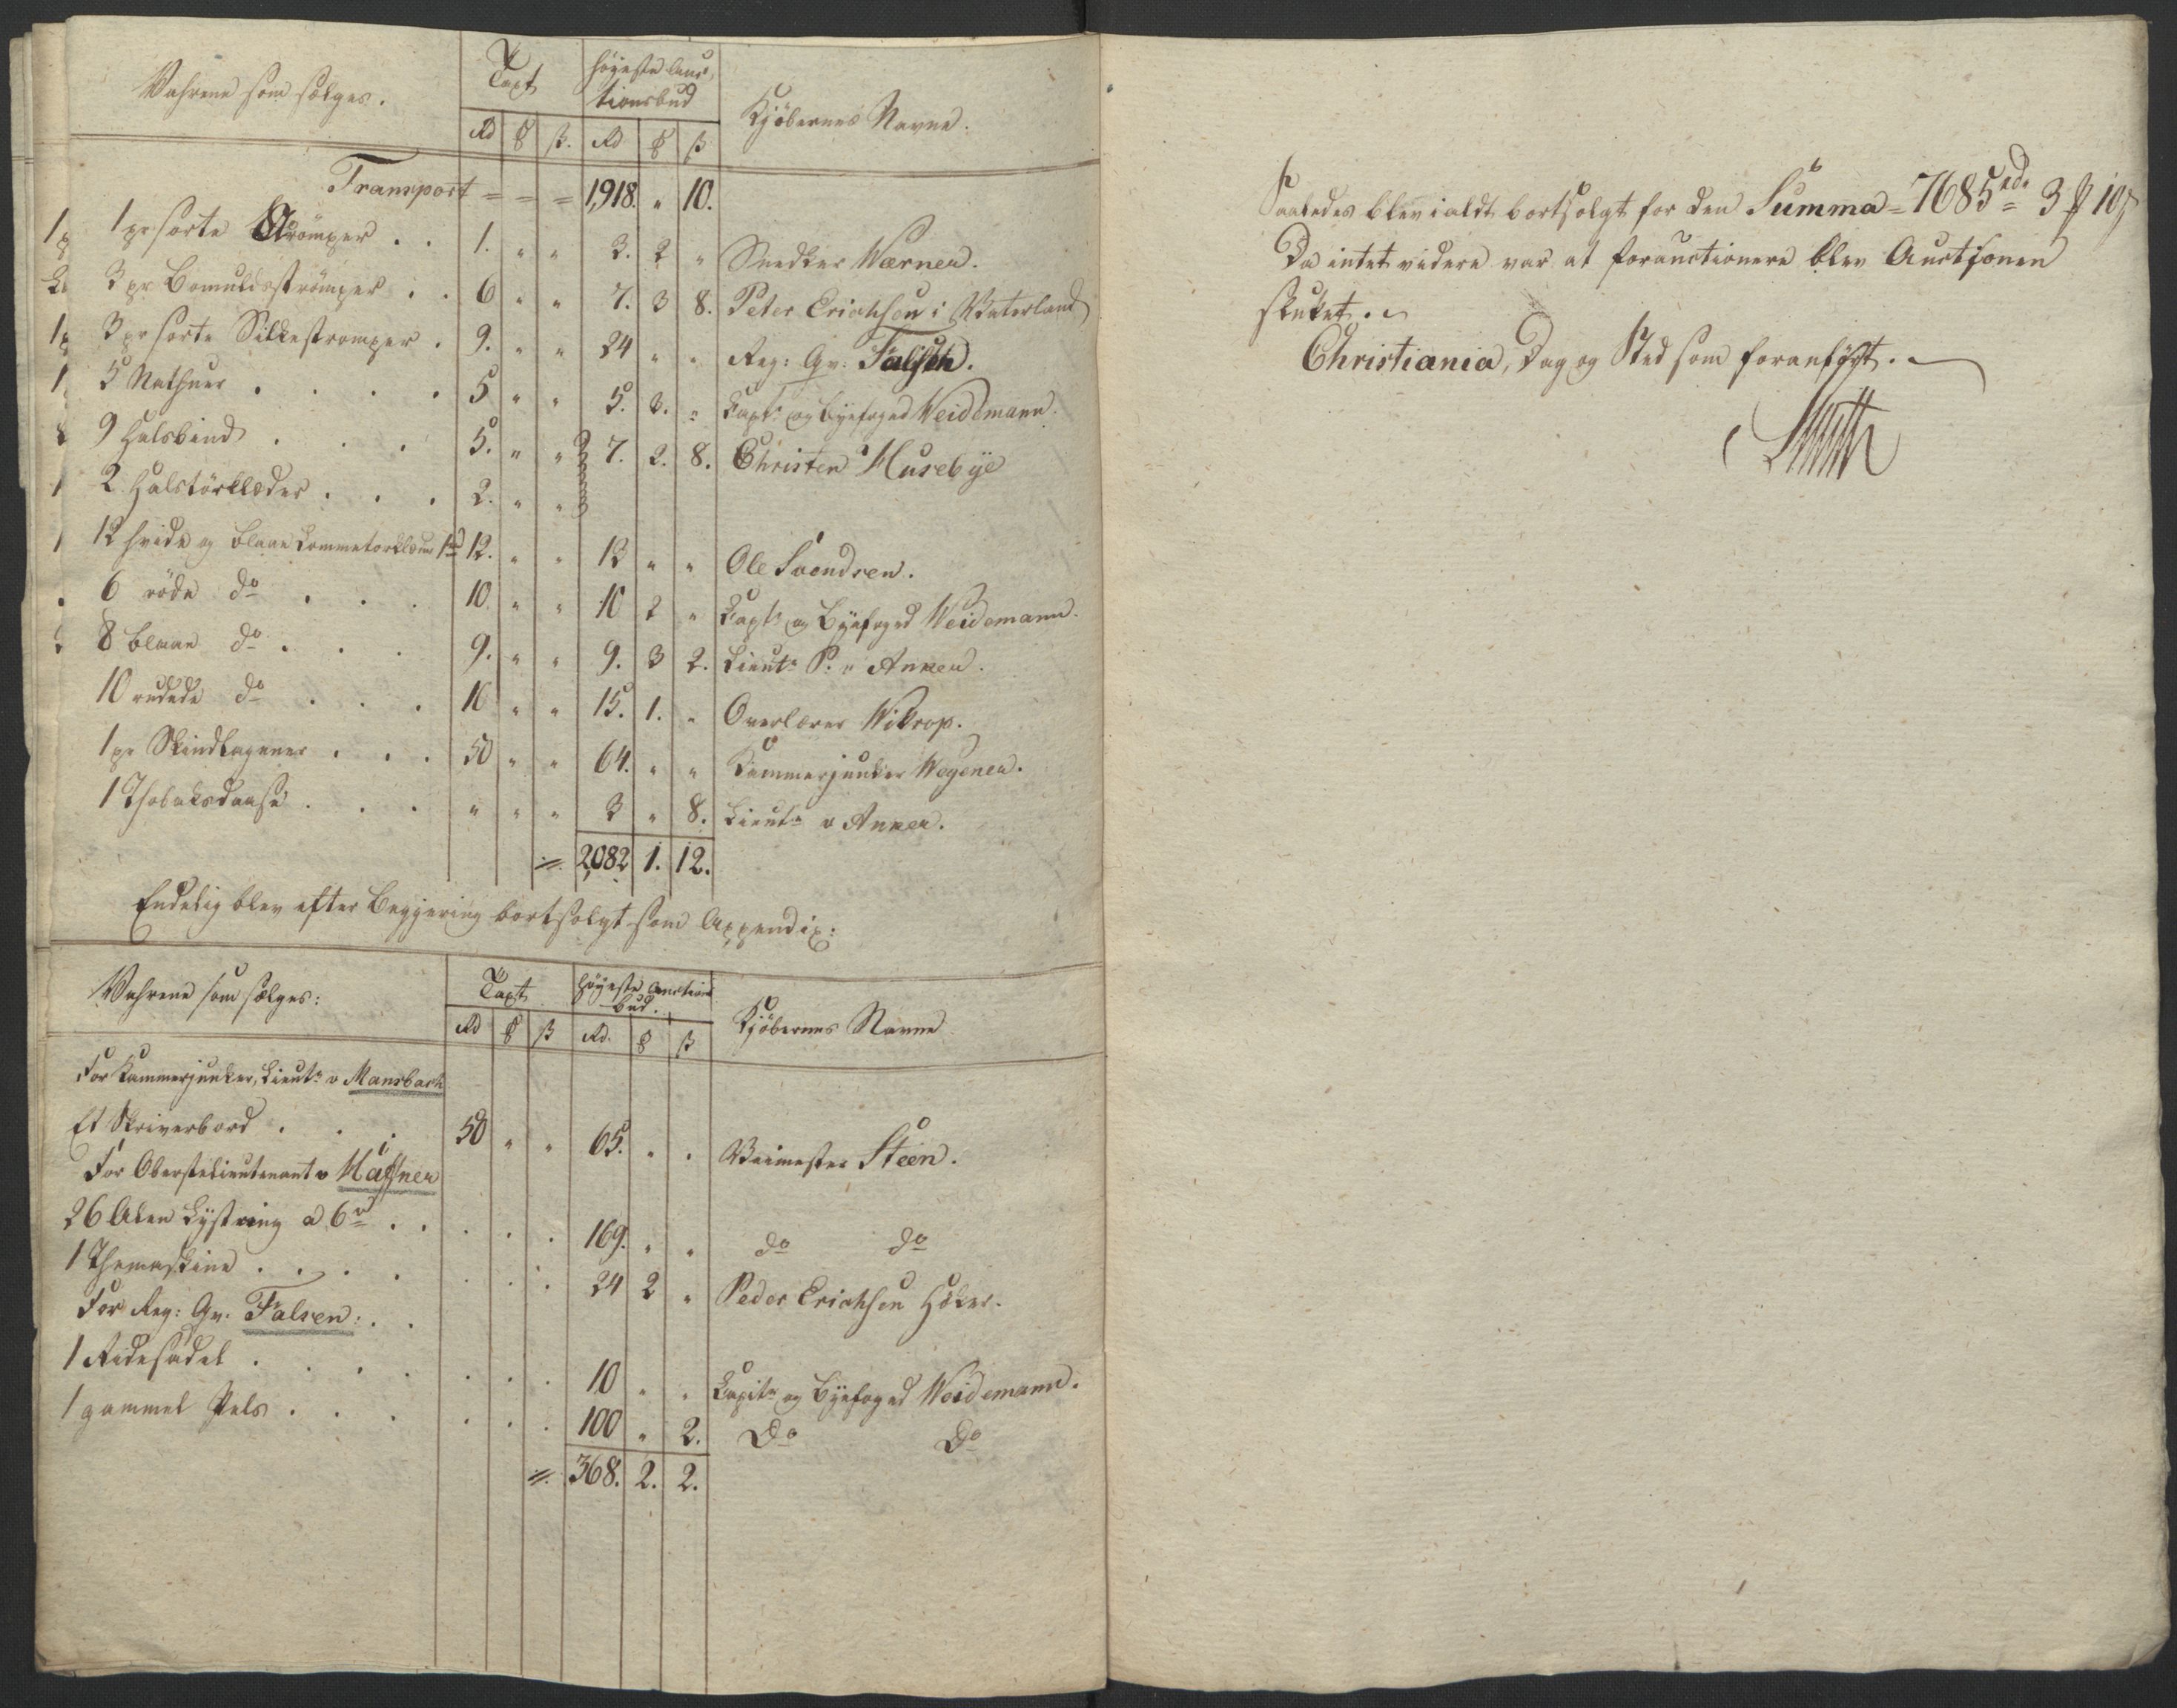 Vahrene som sælges. Taxt høyeste Auc,
tionsbud Kjöbernes Navne.
Rd ß Rd ß
Transport = = = 1,918. " 10.
1 pr sorte Strömper . . 1. " " 3. 2 " Snedker Wærner.
3 pr Bomuldsströmper . . 6 " " 7. 3 8. Peter Erichsen i Waterland
3 pr sorte Silkestrømper . 9. " " 24 " " Reg: Qv: Falsen.
5 Nathuer . . . . 5 " " 5. 3. " Capt: og Byefoged Weidemann.
9 Halsbind . . . 5. " " 7. 2. 8. Christen Husebye
2 Halstörklæder . . . 2. " "
12 hvide og blaae Lommetorklæder 12. " " 13 " " Ole Svendsen.
6 röde do . . . 10. " " 10 2 " Capt: og Byefoged Weidemann.
8 blaae do . . . 9. " " 9. 3 2. Lieutn P. v Anker.
10 rudede do . . . 10 " " 15. 1. " Overlærer Witrop.
1 pr Skindlagener . . . 50 " " 64. " " Kammerjunker Wegener.
1 Thobaksdaase . . . " " " 3 " 8. Lieutn v Anker.
= 2,082 1. 12.
Endelig blev efter Begjering bortsolgt som Appendix:
Vahrene som sælges: Taxt høyeste Auctions
bud. Kjöbernes Navne
Rd ß Rd. ß
For Kammerjunker, Lieutn v Mansbach
Et Skriverbord . . . 50 " " 65. " . Veimester Steen.
For Oberstelieutenant v Häffner
26 Alen Lystring a 6 . . . . . 169. " " do do
1 Themaskine . . . . . . . 24 2 " Peder Erichsen Höker.
For Reg: Qv. Falsen: . .
1 Ridesadel . . . . . . . 10 " " Capitn og Byefoged Weidemann.
1 gammel Pels . . . . . . 100 " 2. Do Do
= 368. 2. 2.
Saaledes blev i aldt bortsolgt for den Summa = 7685 rd. 3 10
Da intet videre var at forauctionere blev Auctionen
sluttet.
Christiania, Dag og Sted som foranfört.